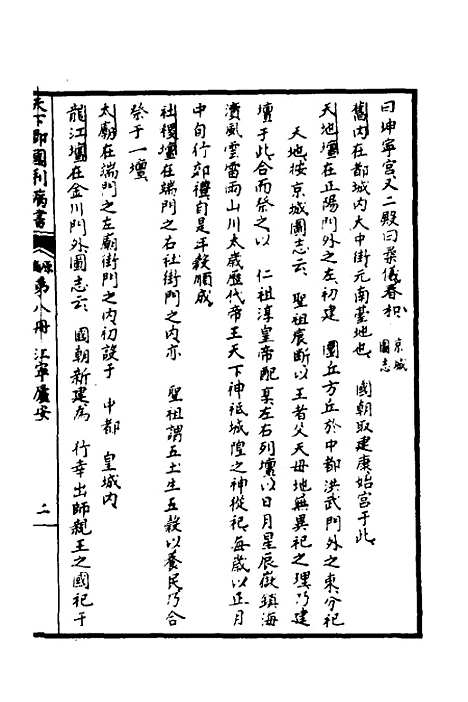 曰坤寧宮又二殿曰柔儀春和京城圖志
舊内在都城内大中街元南臺地也　國朝取建康始宮于此
天地壇在正陽門外之左初建　圜丘方丘於中都洪武門外之東分祀
天地按京城圖志云　聖祖宸斷以王者父天母地無異祀之理乃建
壇于此合而祭之以　仁祖淳皇帝配享左右列壇以日月星辰嶽鎮海
瀆風雲雷雨山川太歲歷代帝王天下神祇城隍之神從祀每歲以正月
中旬行郊禮自是年穀順成
社稷壇在端門之右社街門之内亦　聖祖謂五土生五穀以養民乃合
祭于一壇
太廟在端門之左廟街門之内初設于　中都　皇城内
龍江壇在金川門外圖志云　國朝新建為　行幸出師親王之國祀于
天下郡國利病書　原編第八冊　江寧廬安　二